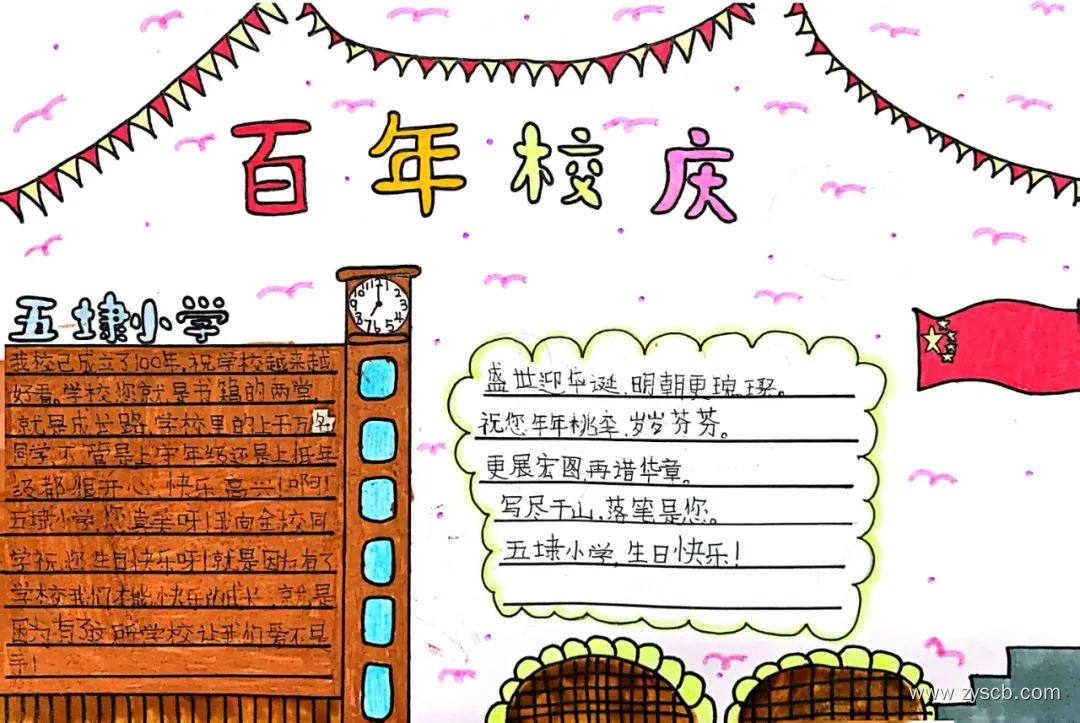 百年校庆
五埭小学
12 1 2 3 4 5 6 7 8 9 10 11
我校已成立了100年,祝学校越来越
好看。学校您就是书籍的两堂,
就是成长路,学校里的上千万名
同学,不管是上中年级还是上抵年
级都很开心、快乐、高兴!啊!
五埭小学,您真美呀!我向全校同
学祝您生日快乐呀!就是因为有了
学校我们才能快乐的成长,就是
因为有了这所学校让我们爱不是
手!
盛世迎华诞,明朝更璀璨。
祝您年年桃李,岁岁芬芳。
更展宏图,再谱华章。
写尽千山,落笔是您。
五埭小学,生日快乐!
www.zyscb.com